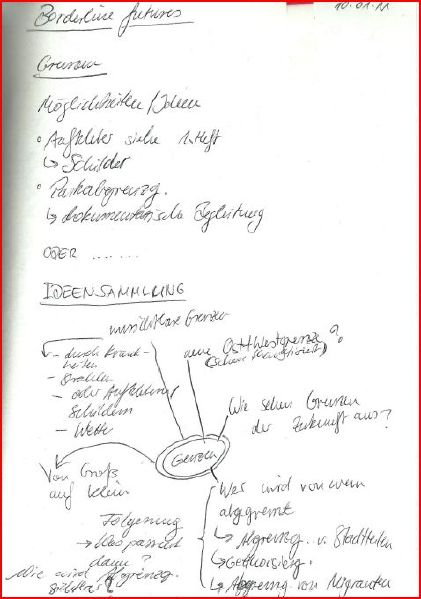 Borderline futures
10.01.11
Grenzen
Möglichkeiten / Ideen
Aufkleber siehe 1. Heft
↳ Schilder
Parkabgrenzg.
↳ dokumentarische Begleitung
ODER .......
IDEENSAMMLUNG
unsichtbare Grenzen
- durch Krank-
heiten
- Strahlen
- oder Aufkleber
Schildern
- Wetter
neue Ost/Westgrenze?
Wie sehen Grenzen
der Zukunft aus?
Grenzen
Von Groß
auf klein
Wer wird von wem
abgegrenzt
↳ Abgrenzg. v. Stadtteilen
↳ Gettoisierg.
↳ Abgrenzg von Migranten
Folgerung
→ Was passiert
dann?
Wie wird Abgrenzg.
sichtbar?